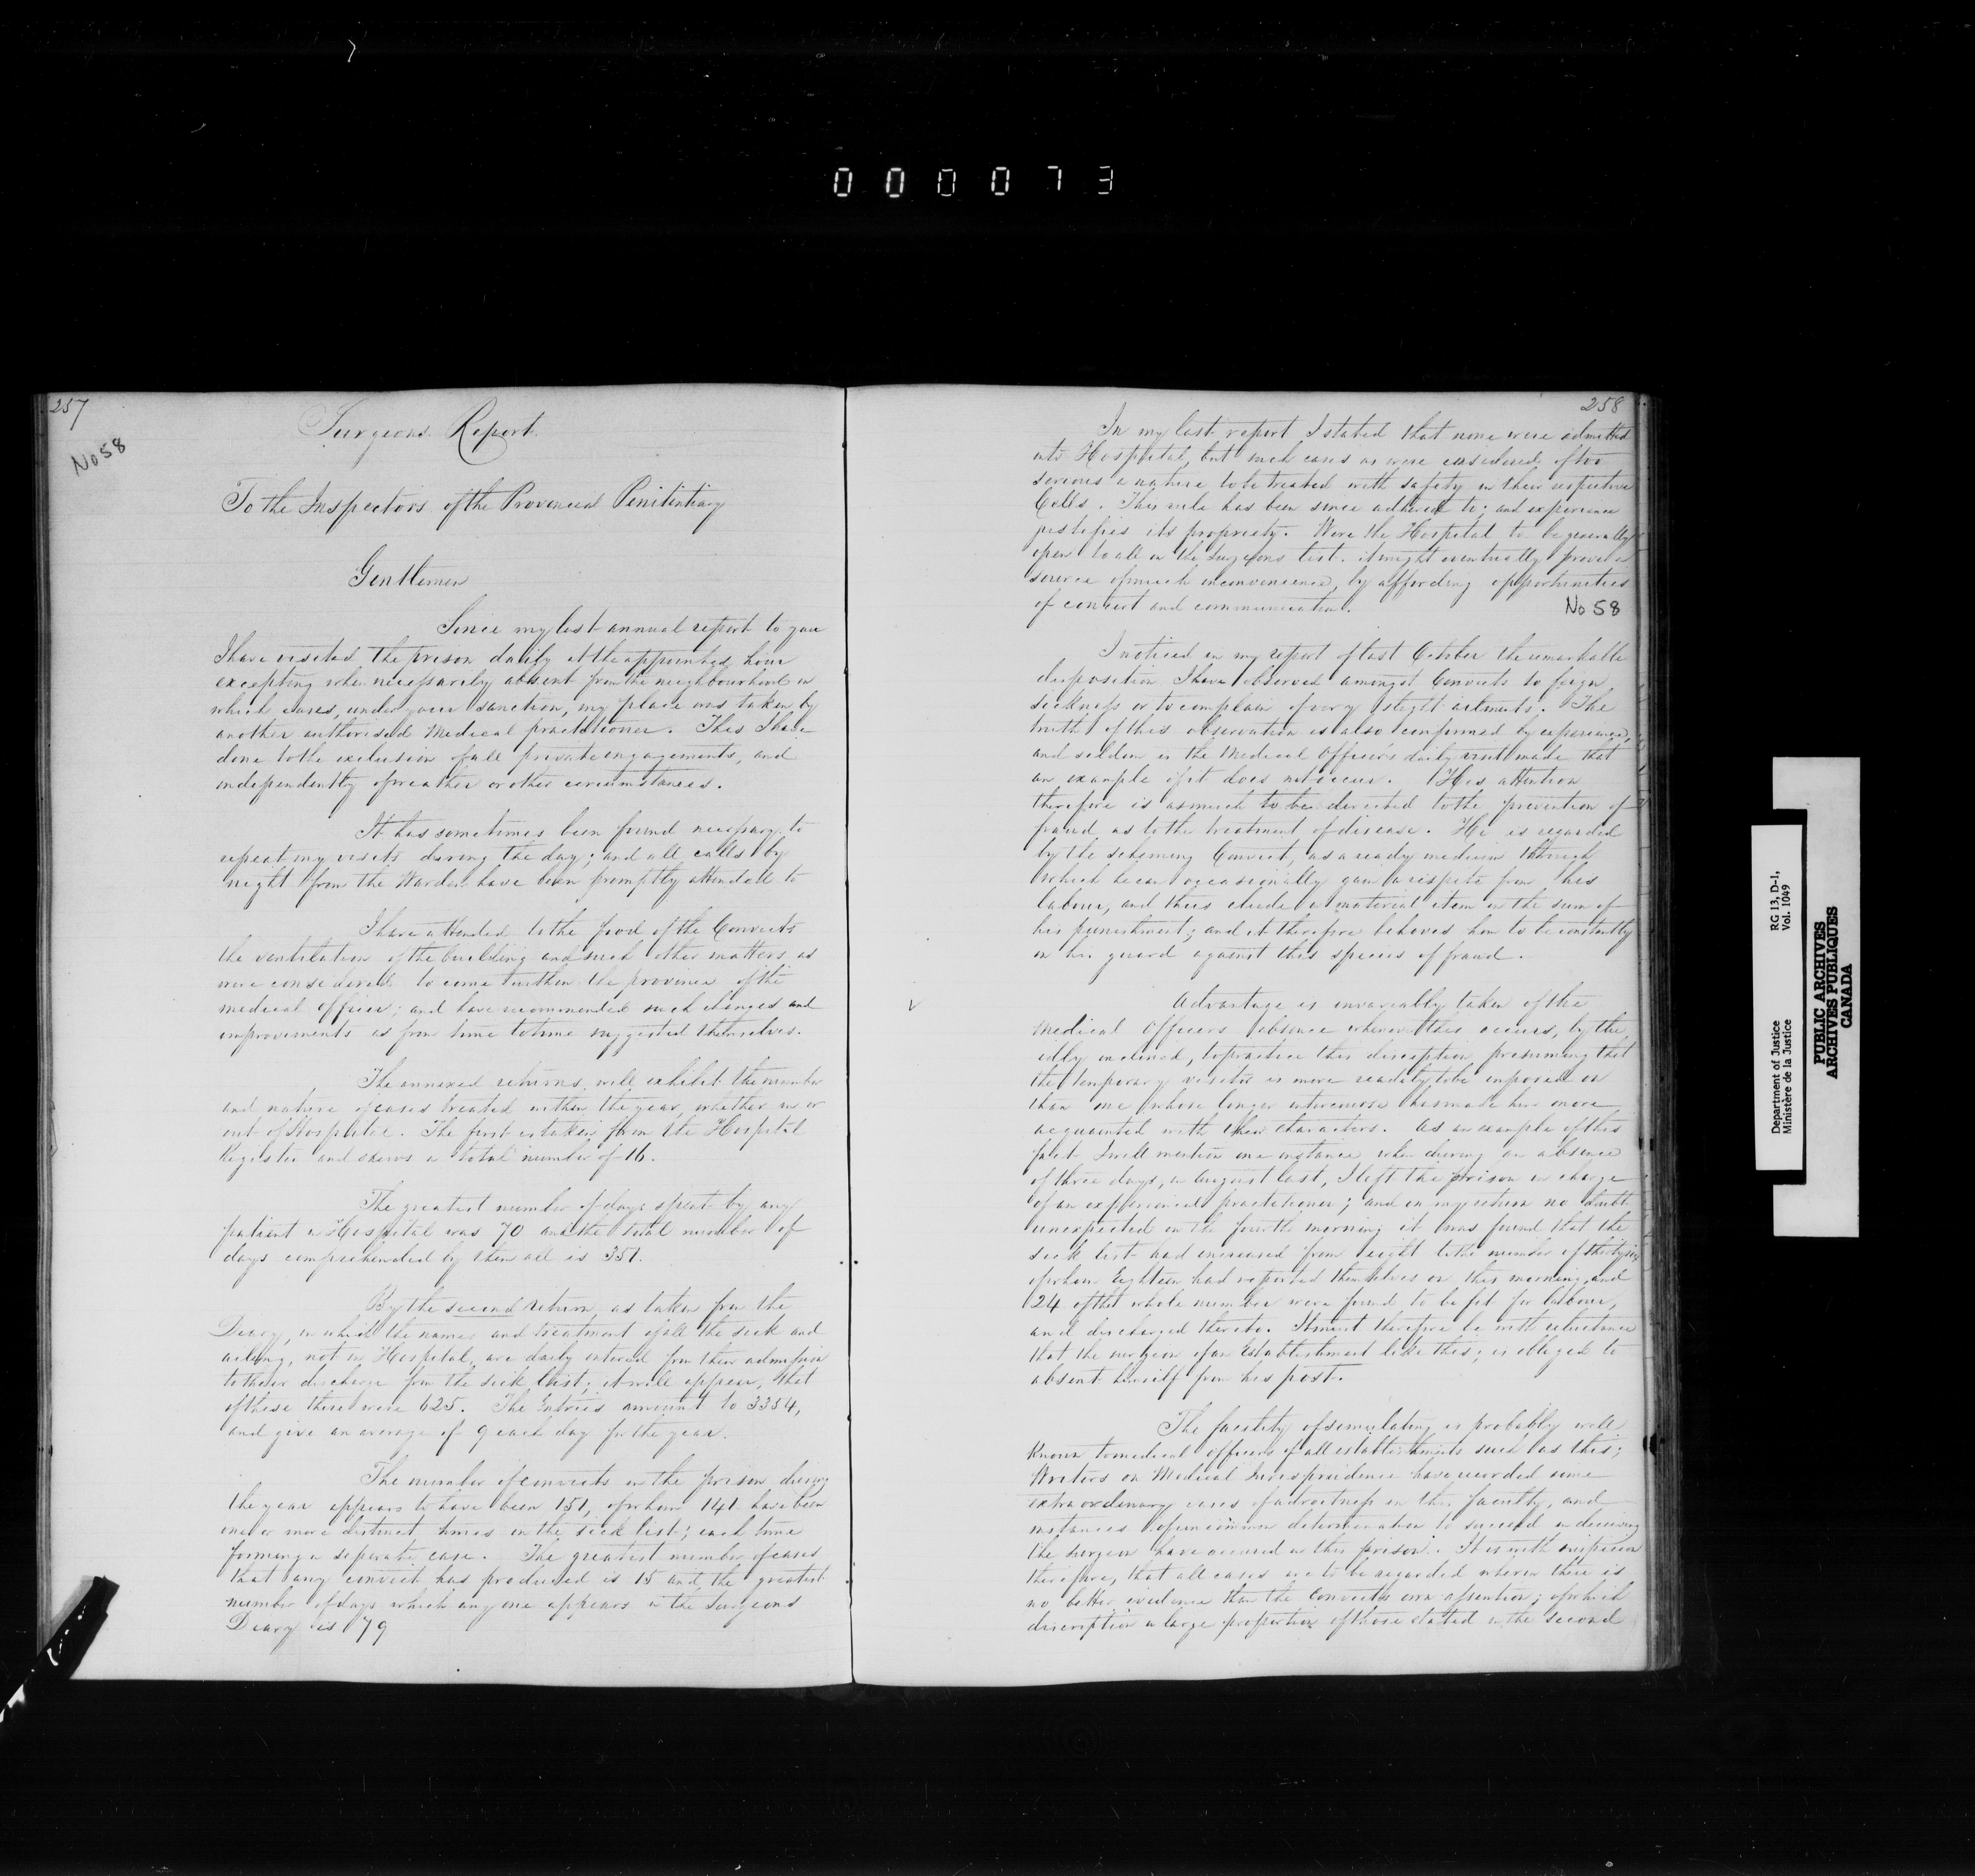 0 0 0 0 7 3
257
No 58
Surgeons Report
To the Inspectors of the Provincial Penitentiary
Gentlemen
Since my last annual report to you
I have visited the prison daily at the appointed hour
excepting when necessarily absent from the neighbourhood in
which cases, under your sanction, my place was taken by
another authorised Medical practitioner. This I have
done to the exclusion of all private engagements, and
independently of weather or other circumstances.
It has sometimes been found necessary to
repeat my visits during the day; and all calls by
night from the Warden have been promptly attended to
I have attended to the food of the Convicts
the ventilation of the building and such other matters as
were considered to come within the province of the
medical officer; and have recommended such changes and
improvements as from time to time suggested themselves.
The annexed returns will exhibit the number
and nature of cases treated within the year, whether in or
out of Hospital. The first is taken from the Hospital
Register and shews a total number of 16.
The greatest number of days spent by any
patient in Hospital was 70 and the total number of
days comprehended by them all is 351.
By the second return, as taken from the
Diary, in which the names and treatment of all the sick and
ailing, not in Hospital, are daily entered from their admission
to their discharge from the sick list; it will appear, that
of these there were 625. The Entries amount to 3354,
and give an average of 9 each day for the year.
The number of convicts in the prison during
the year appears to have been 151, of whom 141 have been
one or more distinct times on the sick list; each time
forming a separate case. The greatest number of cases
that any convict has produced is 15 and the greatest
number of days which any one appears in the Surgeons
Diary is 79
258
In my last report I stated that none were admitted
into Hospital, but such cases as were considered of too
serious a nature to be treated with safety in their respective
Cells. This rule has been since adhered to; and experience
justifies its propriety. Were the Hospital to be generally
open to all on the Surgeons list, it might eventually prove a
source of much inconvenience, by affording opportunities
of concert and communication.
No 58
I noticed in my report of last October the remarkable
disposition I have observed amongst Convicts to feign
sickness or to complain of very slight ailments. The
truth of this observation is also confirmed by experience,
and seldom is the Medical Officer's daily visit made that
an example of it does not occur. His attention
therefore is as much to be directed to the prevention of
fraud as to the treatment of disease. He is regarded
by the scheming Convict, as a ready medium through
which he can occasionally gain a respite from his
labour, and thus elude a material item in the sum of
his punishment; and it therefore behoves him to be constantly
on his guard against this species of fraud.
Advantage is invariably taken of the
Medical Officers absence whenever this occurs, by the
idly inclined, to practice this deception presuming that
the temporary visitor is more readily to be imposed on
than one whose longer intercourse has made him more
acquainted with their characters. As an example of this
fact I will mention one instance when during an absence
of three days, in August last, I left the prison in charge
of an experienced practitioner; and on my return no doubt
unexpected on the fourth morning it was found that the
sick list had increased from eight to the number of thirty six
of whom Eighteen had reported themselves on this morning, and
24 of the whole number were found to be fit for labour,
and discharged thereto. It must therefore be with reluctance
that the surgeon of an Establishment like this; is obliged to
absent himself from his post.
The facility of simulating is probably well
known to medical officers of all establishments such as this;
Writers on Medical Jurisprudence have recorded some
extraordinary cases of adroitness in this faculty, and
instances of uncommon determination to succeed in deceiving
the surgeon have occurred in this prison. It is with suspicion
therefore, that all cases are to be regarded wherein there is
no better evidence than the Convicts own assertion; of which
description a large proportion of those stated in the second
Department of Justice
Ministère de la Justice
RG 13, D-1,
Vol. 1049
PUBLIC ARCHIVES
ARCHIVES PUBLIQUES
CANADA